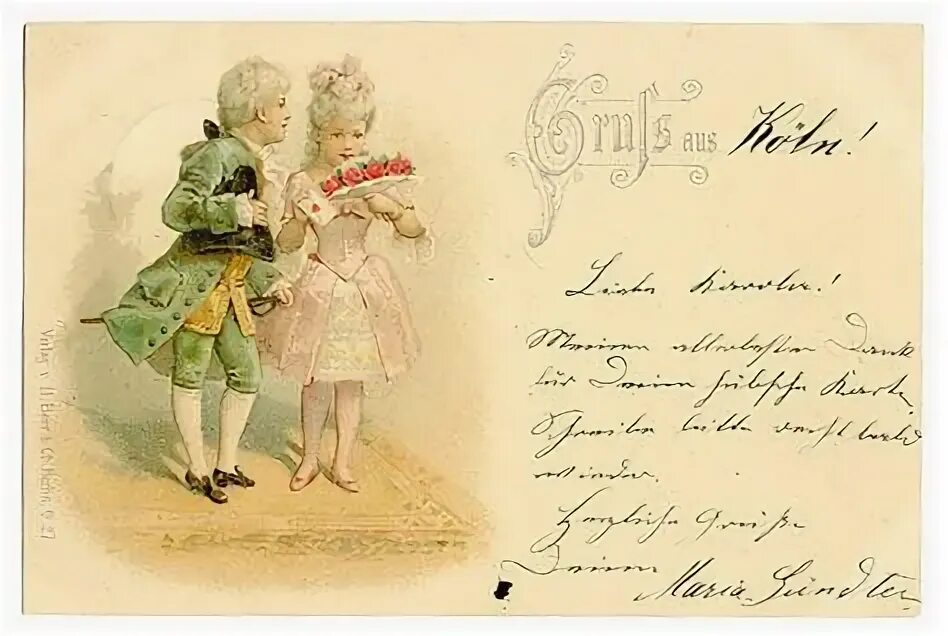 Gruss aus Köln!
Liebe Karoline!
Meinen allerbesten Dank
für Deine hübsche Karte,
Schreibe bitte recht bald
wieder.
Herzliche Grüße
Deine
Maria Gündter
Verlag v.